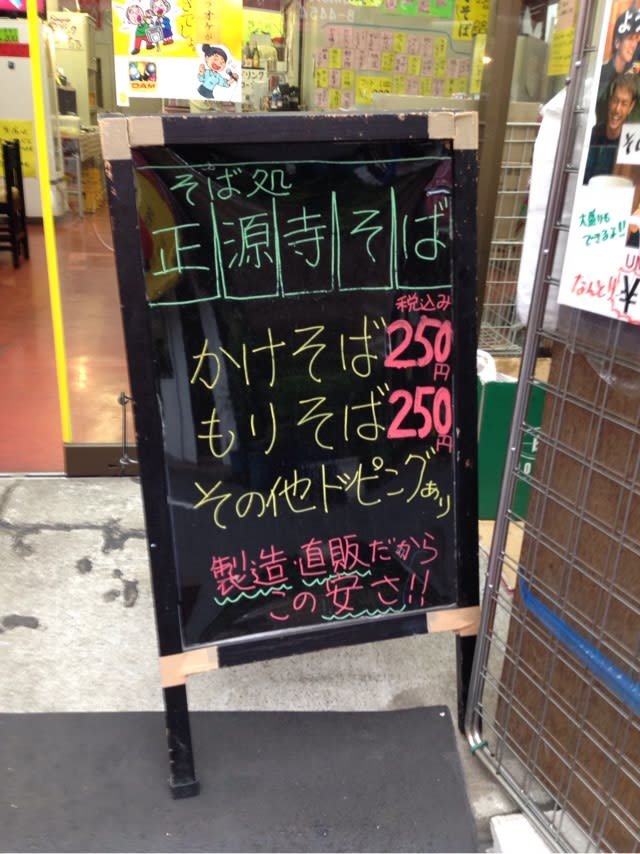 DAM
そば処
正源寺そば
税込み
かけそば250円
もりそば250円
その他トッピングあり
製造・直販だから
この安さ!!
大盛りも
できるよ!!
なんと!!
¥